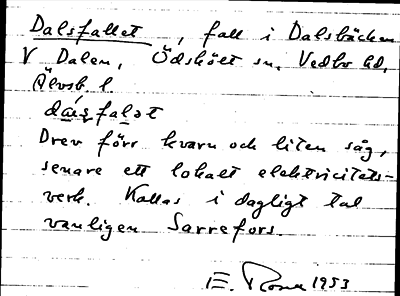 Dalsfallet, fall i Dalsbäcken
V Dalen, Ödskölt sn. Vedbo hd,
Älvsb. l.
da᷉sfalət
Drev förr kvarn och liten såg,
senare ett lokalt elektricitets-
verk. Kallas i dagligt tal
vanligen Sarrefors.
E. 1953